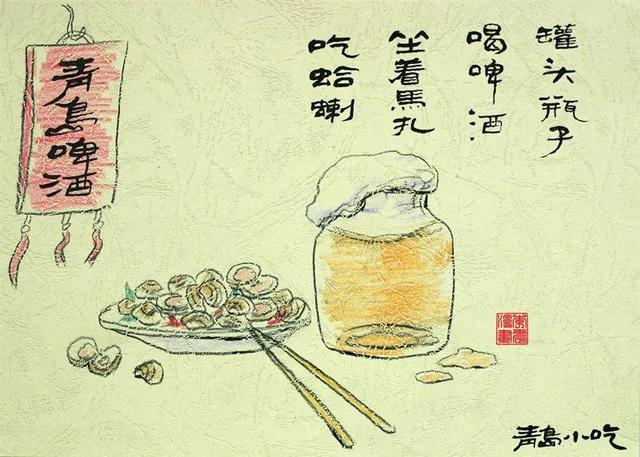 罐头瓶子
喝啤酒
坐着馬扎
吃蛤蜊
青島啤酒
青島小吃